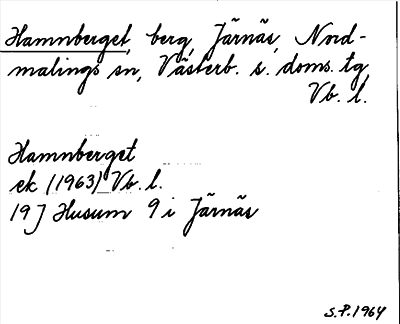 Hamnberget, berg, Järnäs, Nord-
malings sn, Västerb. s. doms. tg,
Vb. l.
Hamnberget
ek (1963) Vb. l.
19 J Husum 9 i Järnäs
S.P. 1964